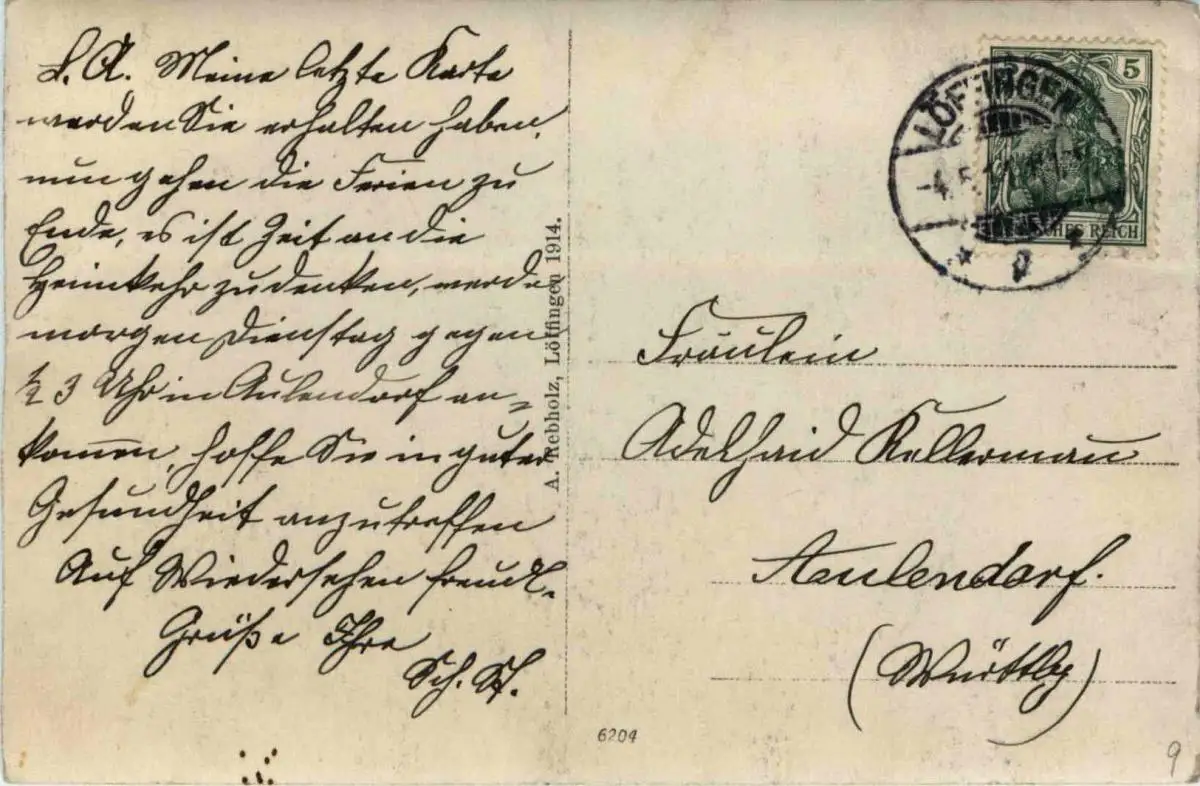 L. A. Meine letzte Karte
werden Sie erhalten haben,
nun gehen die Ferien zu
Ende, es ist Zeit an die
Heimkehr zu denken, werde
morgen Dienstag gegen
½ 3 Uhr in Aulendorf an=
kommen, hoffe Sie in guter
Gesundheit anzutreffen
Auf Wiedersehen freundl.
Grüße Ihre
Sch. St.
A. Rebholz, Löffingen 1914.
6204
LÖFFINGEN
-4.5.14
5
DEUTSCHES REICH
Fräulein
Adelhaid Kellermann
Aulendorf.
(Württbg)
9